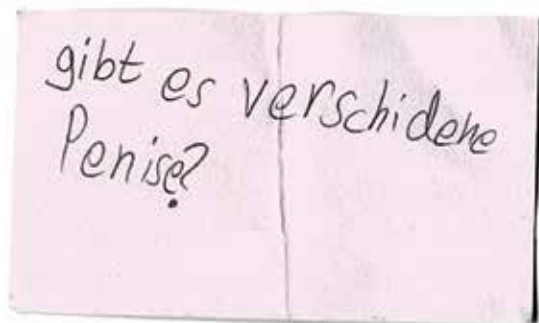 gibt es verschidene
Penise?